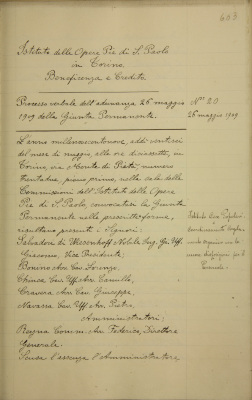 653
Istituto delle Opere Pie di S. Paolo
in Torino
Beneficenza e Credito
Processo verbale dell'adunanza 26 maggio
1909 della Giunta Permanente.
N° 20
26 maggio 1909
L'anno millenovecentonove, addì ventisei
del mese di maggio, alle ore diciassette, in
Torino, via Monte di Pietà, numero
trentadue, piano primo, nella sala delle
Commissioni dell'Istituto delle Opere
Pie di S. Paolo, convocatasi la Giunta
Permanente nelle prescritte forme,
risultano presenti i Signori:
Salvatore di Wiesenhoff Nobile Ing. Gr. Uff.
Giacomo, Vice Presidente,
Bonino Avv. Cav. Lorenzo,
Chinea Cav. Uff. Avv. Camillo,
Craveri Avv. Cav. Giuseppe,
Navassa Cav. Uff. Avv. Pietro,
Amministratori;
Regna Comm. Avv. Federico, Direttore
Generale.
Scusa l'assenza l'Amministratore